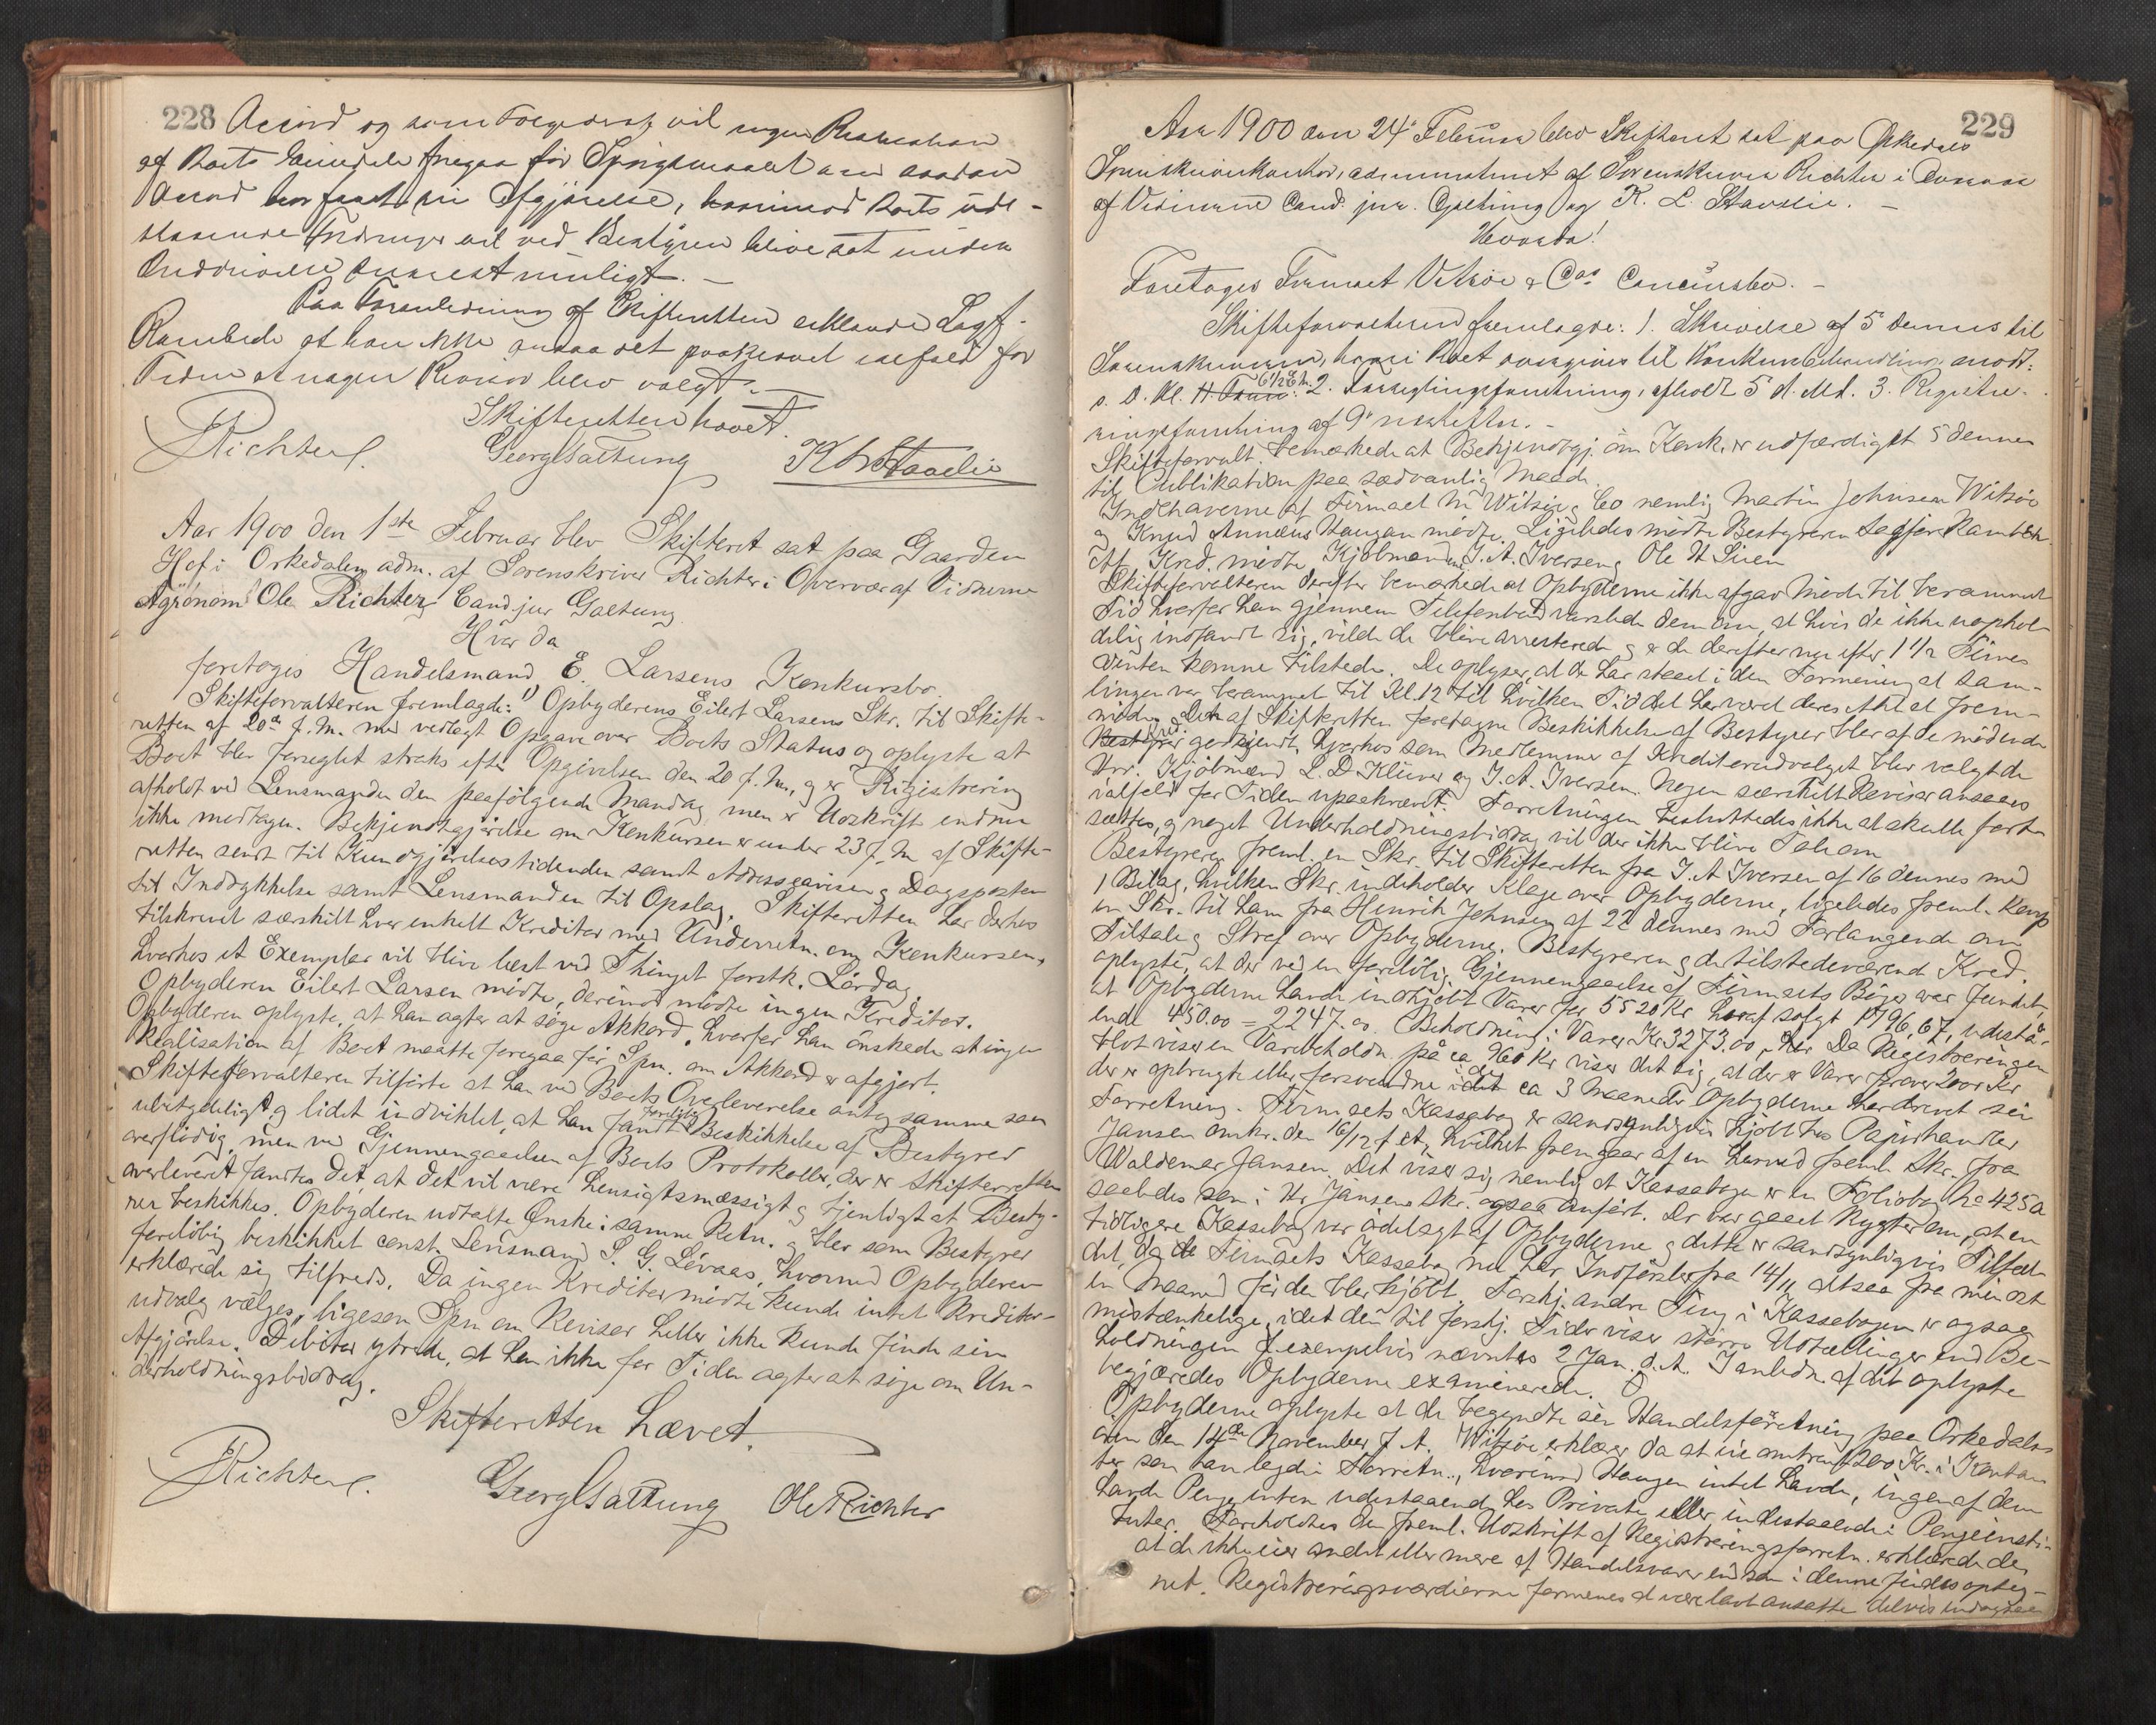 228
Accord og som Følge deraf vil ingen Realisation
af Boets Eiendele foregaa før Spørgsmaalet om saadan
Accord har faaet sin Afgjørelse, hvorimod Boets ude-
staaende Fordringer vil ved Bestyren blive sat under
Inddrivelse snarest muligt. -
Paa Foranledning af Skifteretten erklærede Sagf.
Rambech at han ikke ansaa det paakrævet ialfald for
Tiden at nogen Revisor blev valgt. -
Skifteretten hævet.
Richter. Georg Galtung K L Staveli
Aar 1900 den 1ste Februar blev Skifteret sat paa Gaarden
Hof i Orkedalen adm. af Sorenskriver Richter i Overvær af Vidnerne
Agronom Ole Richter, Cand jur Galtung
Hvor da
foretoges Handelsmand E. Larsens Konkursbo.
Skifteforvalteren fremlagde: 1) Opbyderens Eilert Larsens Skr. til Skifte-
retten af 20de f. M. med vedlagt Opgave over Boets Status og oplyste at
Boet blev forseglet straks efter Opgivelsen den 20 f. M., og er Registrering
afholdt ved Lensmanden den paafølgende Mandag, men er Udskrift endnu
ikke modtagen. Bekjendtgjørelse om Konkursen er under 23 f. M af Skifte-
retten sendt til Kundgjørelsestidenden samt Adresseavisen og Dagsposten
til Indrykkelse samt Lensmanden til Opslag. Skifteretten har derhos
tilskrevet særskilt hver enkelt Kreditor med Underretn. om Konkursen,
hvorhos et Exemplar vil blive læst ved Thinget førstk. Lørdag
Opbyderen Eilert Larsen mødte, derimod mødte ingen Kreditor.
Opbyderen oplyste, at han agter at søge Akkord, hvorfor han ønskede at ingen
Realisation af Boet maatte foregaa før Spm. om Akkord er afgjort.
Skifteforvalteren tilførte at han ved Boets Overleverelse antog samme saa
ubetydeligt og lidet indviklet, at han fandt foreløbig Beskikkelse af Bestyrer
overflødig, men ved Gjennemgaaelsen af Boets Protokoller, der er Skifteretten
overleveret fandtes det, at det vil være hensigtsmæssigt og tjenligt at Besty-
rer beskikkes. Opbyderen udtalte Ønske i samme Retn. og blev som Bestyrer
foreløbig beskikket const. Lensmand S. G. Løvaas, hvormed Opbyderen
erklærede sig tilfreds. Da ingen Kreditor mødte kunde intet Kreditor-
udvalg vælges, ligesom Spm om Revisor heller ikke kunde finde sin
Afgjørelse. Debitor ytrede, at han ikke for Tiden agter at søge om Un-
derholdningsbidrag.
Skifteretten hævet.
Richter. Georg Galtung Ole Richter
229
Aar 1900 den 24' Februar blev Skifteret sat paa Orkedals
Sorenskriverkontor, administreret af Sorenskriver Richter i Overvær
af Vidnerne Cand. jur. Galtung og K. L. Staveli. -
Hvorda!
Foretoges Firmaet Vitsøe & Cos Concursbo. -
Skifteforvalteren fremlagde: 1. Skrivelse af 5 dennes til
Sorenskriveren, hvori Boet overgives til Konkursbehandling, modt.
s. D. Kl. 6 1/2 Em. 2. Forseglingsforretning, afholdt 5 d. Md. 3. Registre-
ringsforretning af 9' næstefter. -
Skifteforvalt. bemærkede at Bekjendtgj. om Konk. er udfærdiget 5 dennes
til Publikation paa sædvanlig Maade.
Indehaverne af Firmaet M Witsøe & Co nemlig Martin Johnsen Witsøe
og Knud Annæus Haugan mødte. Ligeledes mødte Bestyreren Sagfører Rambech.
Af Kred. mødte Kjøbmænd J. A. Iversen, Ole H Lien
Skifteforvalteren derefter bemærkede at Opbyderne ikke afgav Møde til berammet
Tid hvorfor han gjennem Telefonbud varslede dem om, at hvis de ikke uophol-
delig indfandt sig, vilde de blive arresterede, og er de derefter nu efter 1 1/2 Times
Venten komne tilstede. De oplyser, at de har staaet i den Formening at Sam-
lingen var berammet til Kl. 12 til hvilken Tid det har været deres Agt at frem-
møde. Den af Skifteretten foretagne Beskikkelse af Bestyrer blev af de mødende
Kred. godkjendt, hvorhos som Medlemmer af Kreditorudvalget blev valgt de
Hrr. Kjøbmænd L. D. Klüwer og J. A. Iversen. Nogen særskilt Revisor ansaaes
ialfald for Tiden upaakrævet. Forretningen besluttedes ikke at skulle fort-
sættes, og noget Underholdningsbidrag vil der ikke blive Tale om
Bestyreren freml. en Skr. til Skifteretten fra J. A Iversen af 16 dennes med
1 Bilag, hvilken Skr. indeholder Klage over Opbyderne, ligeledes freml. Komp
en Skr. til ham fra Henrik Johnsen af 22 dennes med Forlangende om
Tiltale og Straf over Opbyderne. Bestyreren og de tilstedeværende Kred.
oplyste, at der ved en foreløbig Gjennemgaaelse af Firmaets Bøger var fundet,
at Opbyderne havde indkjøbt Varer for 5520 Kr hvoraf solgt 1796,67, udestå-
ende 450.00 = 2247.00. Beholdning: Varer Kr 3273.00. Da Registreringen
blot viser en Varebeholdn. på ca 960 Kr viser det sig, at der er Varer for over 2000 Kr
der er opbrugte eller forsvundne i de ca 3 Maaneder Opbyderne har drevet sin
Forretning. Firmaets Kassabog er sandsynligvis kjøbt hos Papirhandler
Jansen omkr. den 16/12 f. A., hvilket fremgaar af en herved freml. Skr. fra
Waldemar Jansen. Det viser sig nemlig at Kassabogen er en Foliobog No 425a
saaledes som i Hr Jansens Skr. ogsaa anført. Der har gaaet Rygter om, at en
tidligere Kassabog var ødelagt af Opbyderne og dette er sandsynligvis Tilfæl-
det, da de Firmaets Kassabog nu har Indførsler fra 14/11 altsaa fra mindst
en Maaned før den blev kjøbt. Forskj. andre Ting i Kassabogen er ogsaa
mistænkelige, idet den til forskj. Tider viser større Udtællinger end Be-
holdningen f. exempelvis nævntes 2 Jan. d. A. I Anledn. af det oplyste
begjæredes Opbyderne examinerede.
Opbyderne oplyste at de begyndte sin Handelsforretning paa Orkedals-
øren den 14de November f A. Witsøe erklærer da at eie omtrent 200 Kr. i Kontan-
ter som han lagde i Forretn., hvorimod Haugen intet havde, ingen af dem
havde Penge enten udestaaende hos Private eller indestaaende i Pengeinsti-
tuter. Foreholdtes den freml. Udskrift af Registreringsforretn. erklærede de,
at de ikke eier andet eller mere af Handelsvarer end som i denne findes opteg-
net. Registreringsværdierne formenes at være lavt ansatte delvis